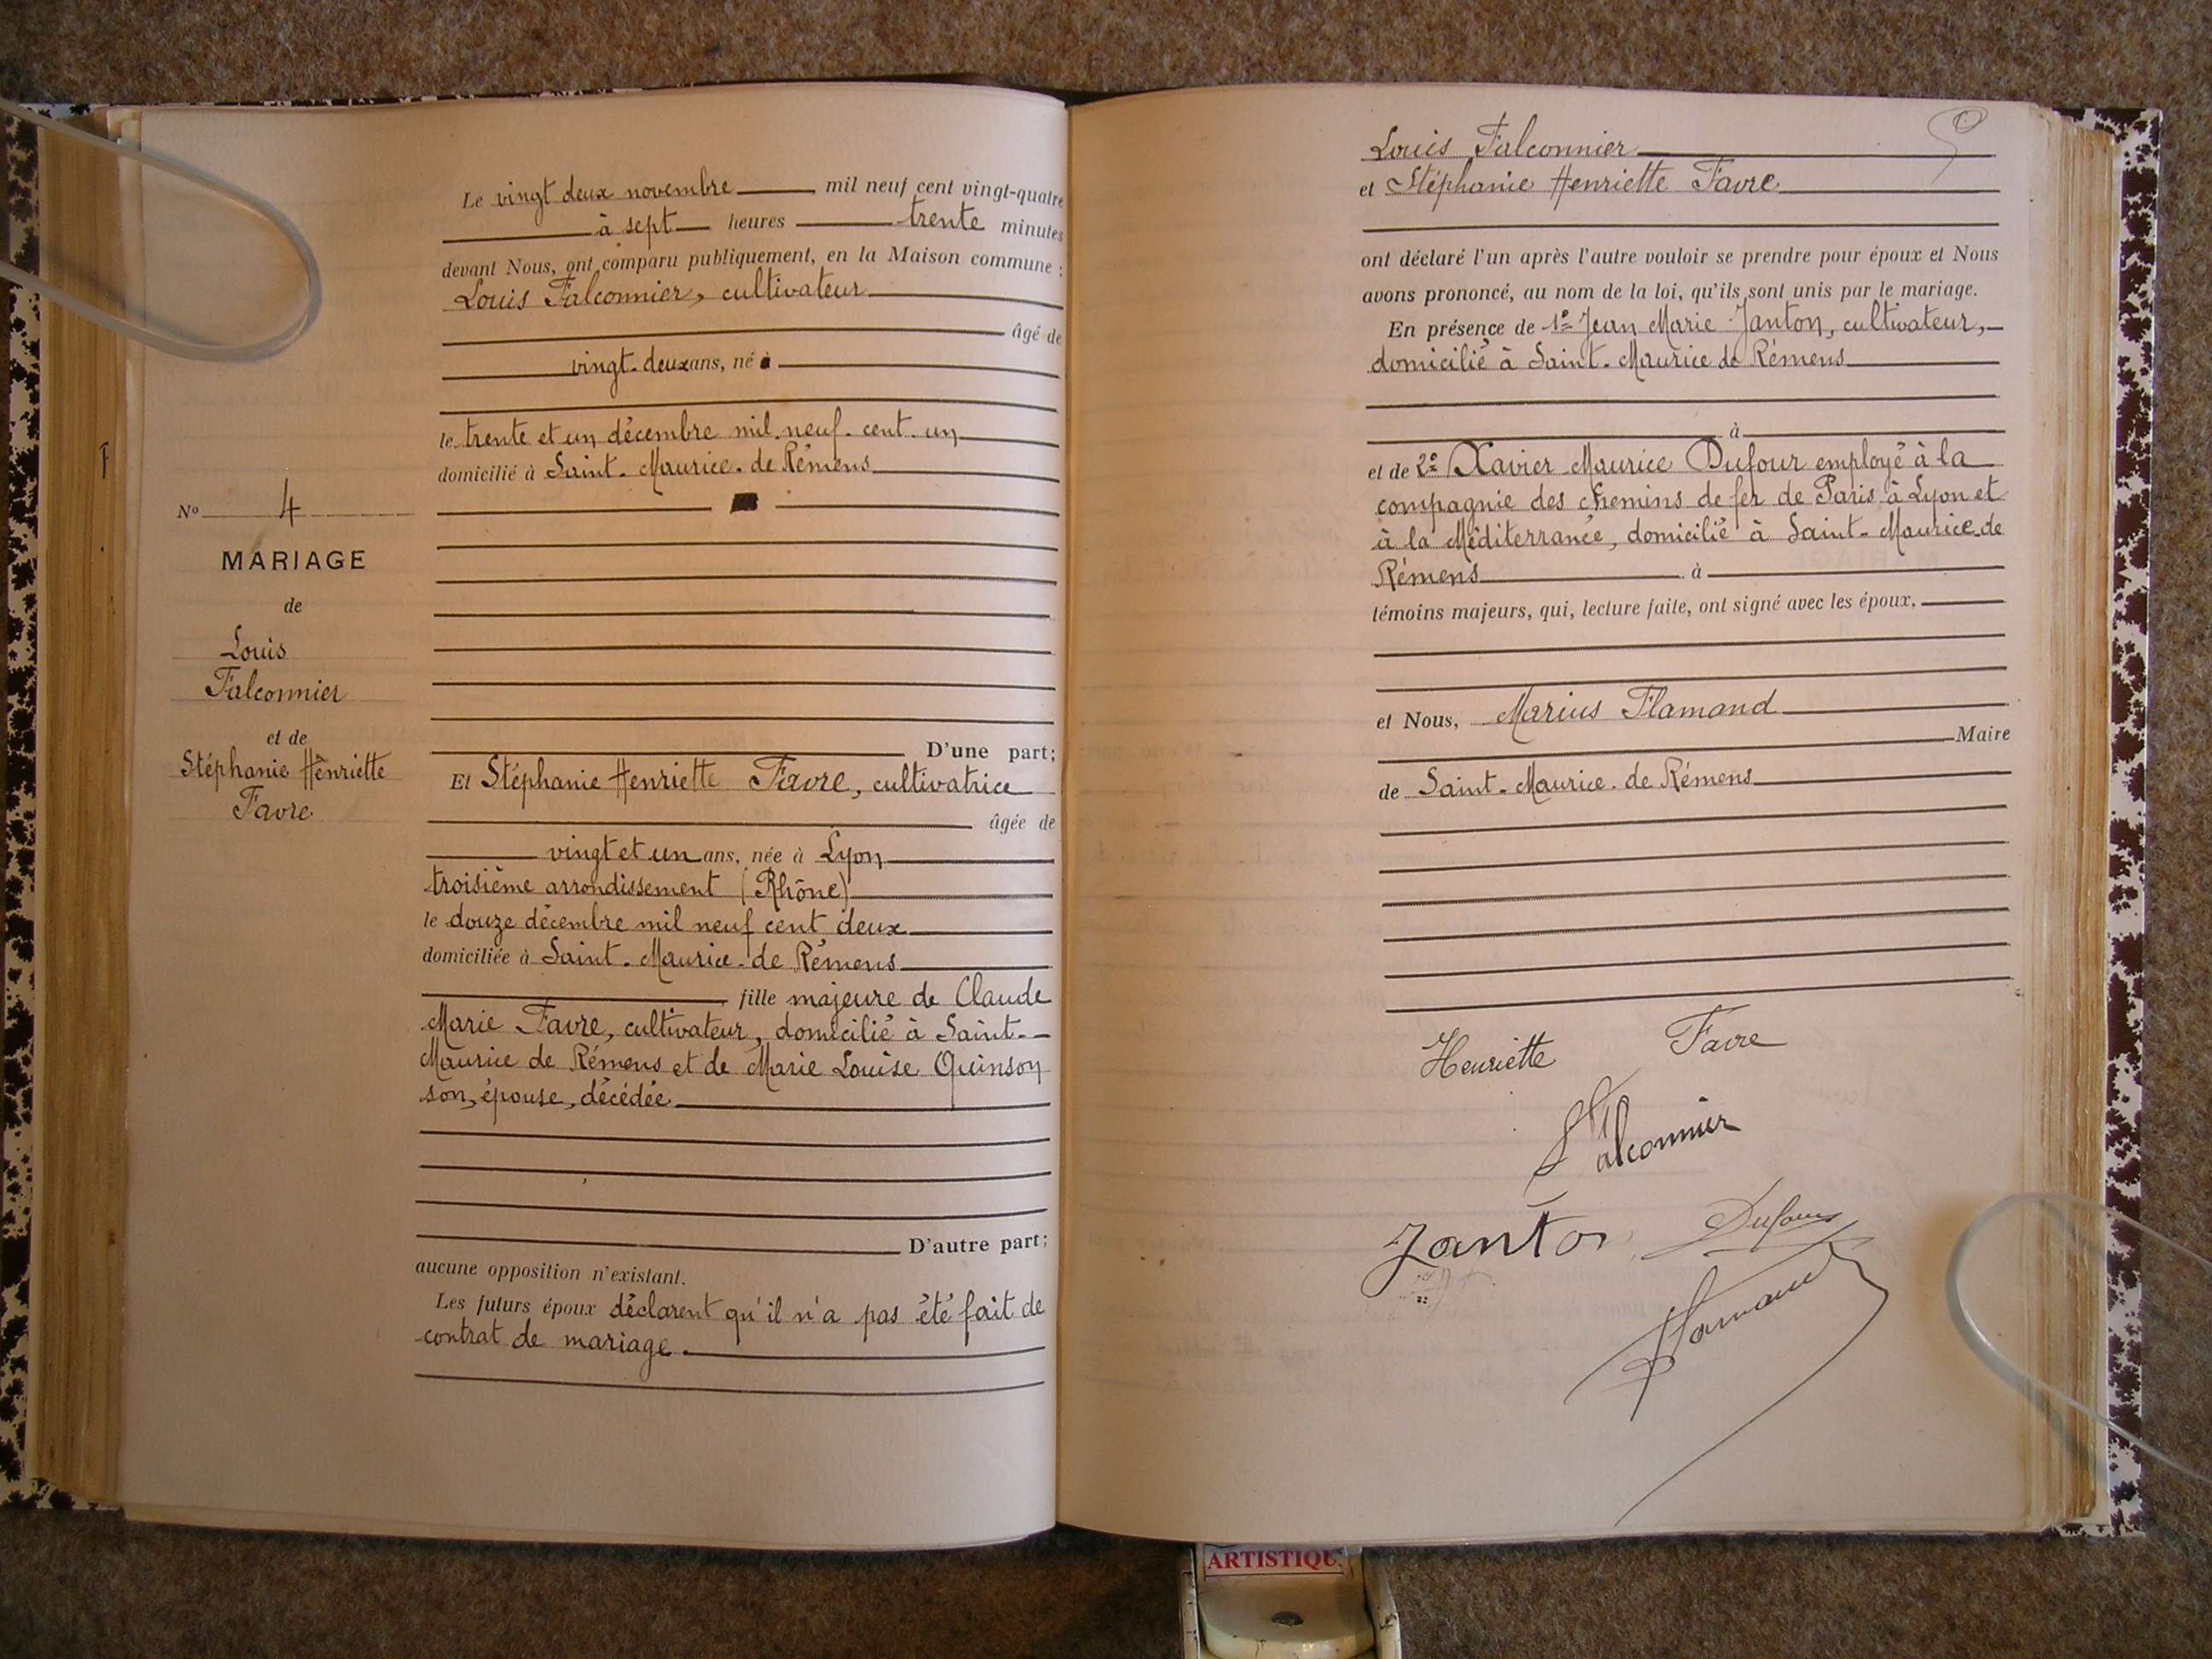 Le vingt deux novembre mil neuf cent vingt-quatre
à sept heures trente minutes
devant Nous, ont comparu publiquement, en la Maison commune :
Louis Falconnier, cultivateur
âgé de
vingt-deux ans, né à
le trente et un décembre mil neuf cent un
domicilié à Saint-Maurice-de Rémens
No 4
MARIAGE
de
Louis
Falconnier
et de
Stéphanie Henriette
Favre
D'une part;
Et Stéphanie Henriette Favre, cultivatrice
âgée de
vingt et un ans, née à Lyon
troisième arrondissement (Rhône)
le douze décembre mil neuf cent deux
domiciliée à Saint-Maurice-de Rémens
fille majeure de Claude
Marie Favre, cultivateur, domicilié à Saint-
Maurice de Rémens et de Marie Louise Quinson
son épouse, décédée
D'autre part;
aucune opposition n'existant.
Les futurs époux déclarent qu'il n'a pas été fait de
contrat de mariage.
Louis Falconnier
et Stéphanie Henriette Favre
ont déclaré l'un après l'autre vouloir se prendre pour époux et Nous
avons prononcé, au nom de la loi, qu'ils sont unis par le mariage.
En présence de 1º Jean Marie Janton, cultivateur,
domicilié à Saint-Maurice de Rémens
à
et de 2º Xavier Maurice Dufour employé à la
compagnie des chemins de fer de Paris à Lyon et
à la Méditerranée, domicilié à Saint-Maurice-de
Rémens à
témoins majeurs, qui, lecture faite, ont signé avec les époux,
et Nous, Marius Flamand
Maire
de Saint-Maurice-de Rémens
Henriette Favre
Falconnier
Janton Dufour
Flamand
ARTISTIQU